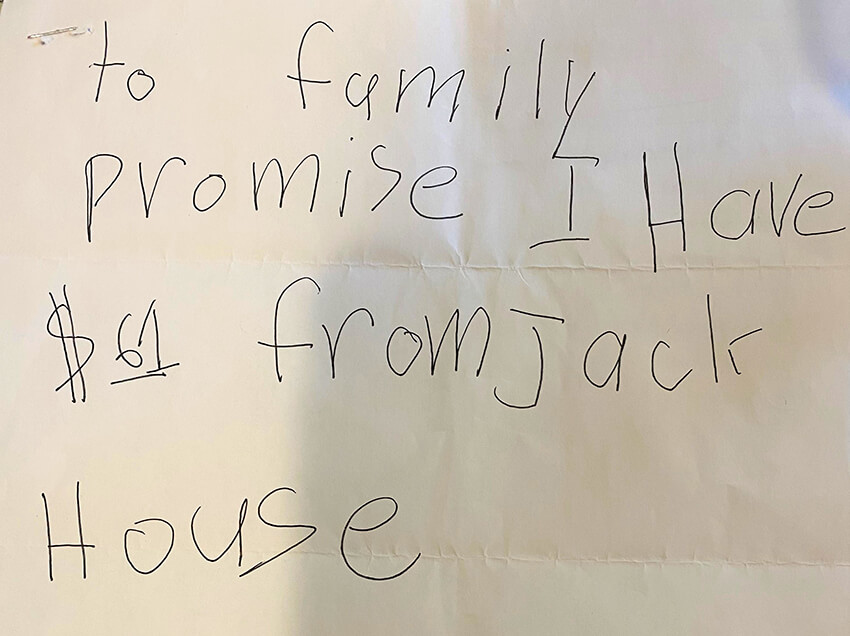 to family
promise I Have
$61 from jack
House